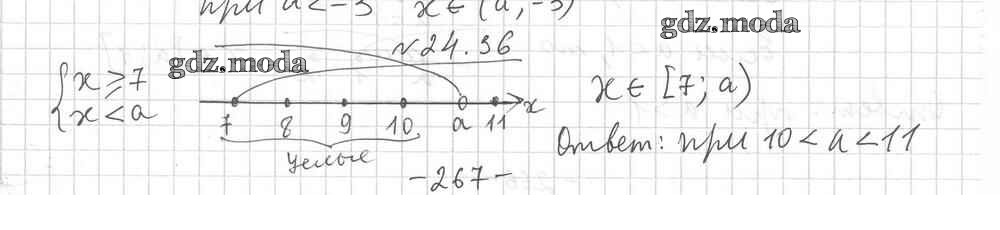 при a < -3 x ∈ (a, -3)
gdz.moda
№24.36
gdz.moda
{ x ≥ 7
x < a
7 8 9 10 a 11 x
целые
x ∈ [7; a)
Ответ: при 10 < a < 11
-267-